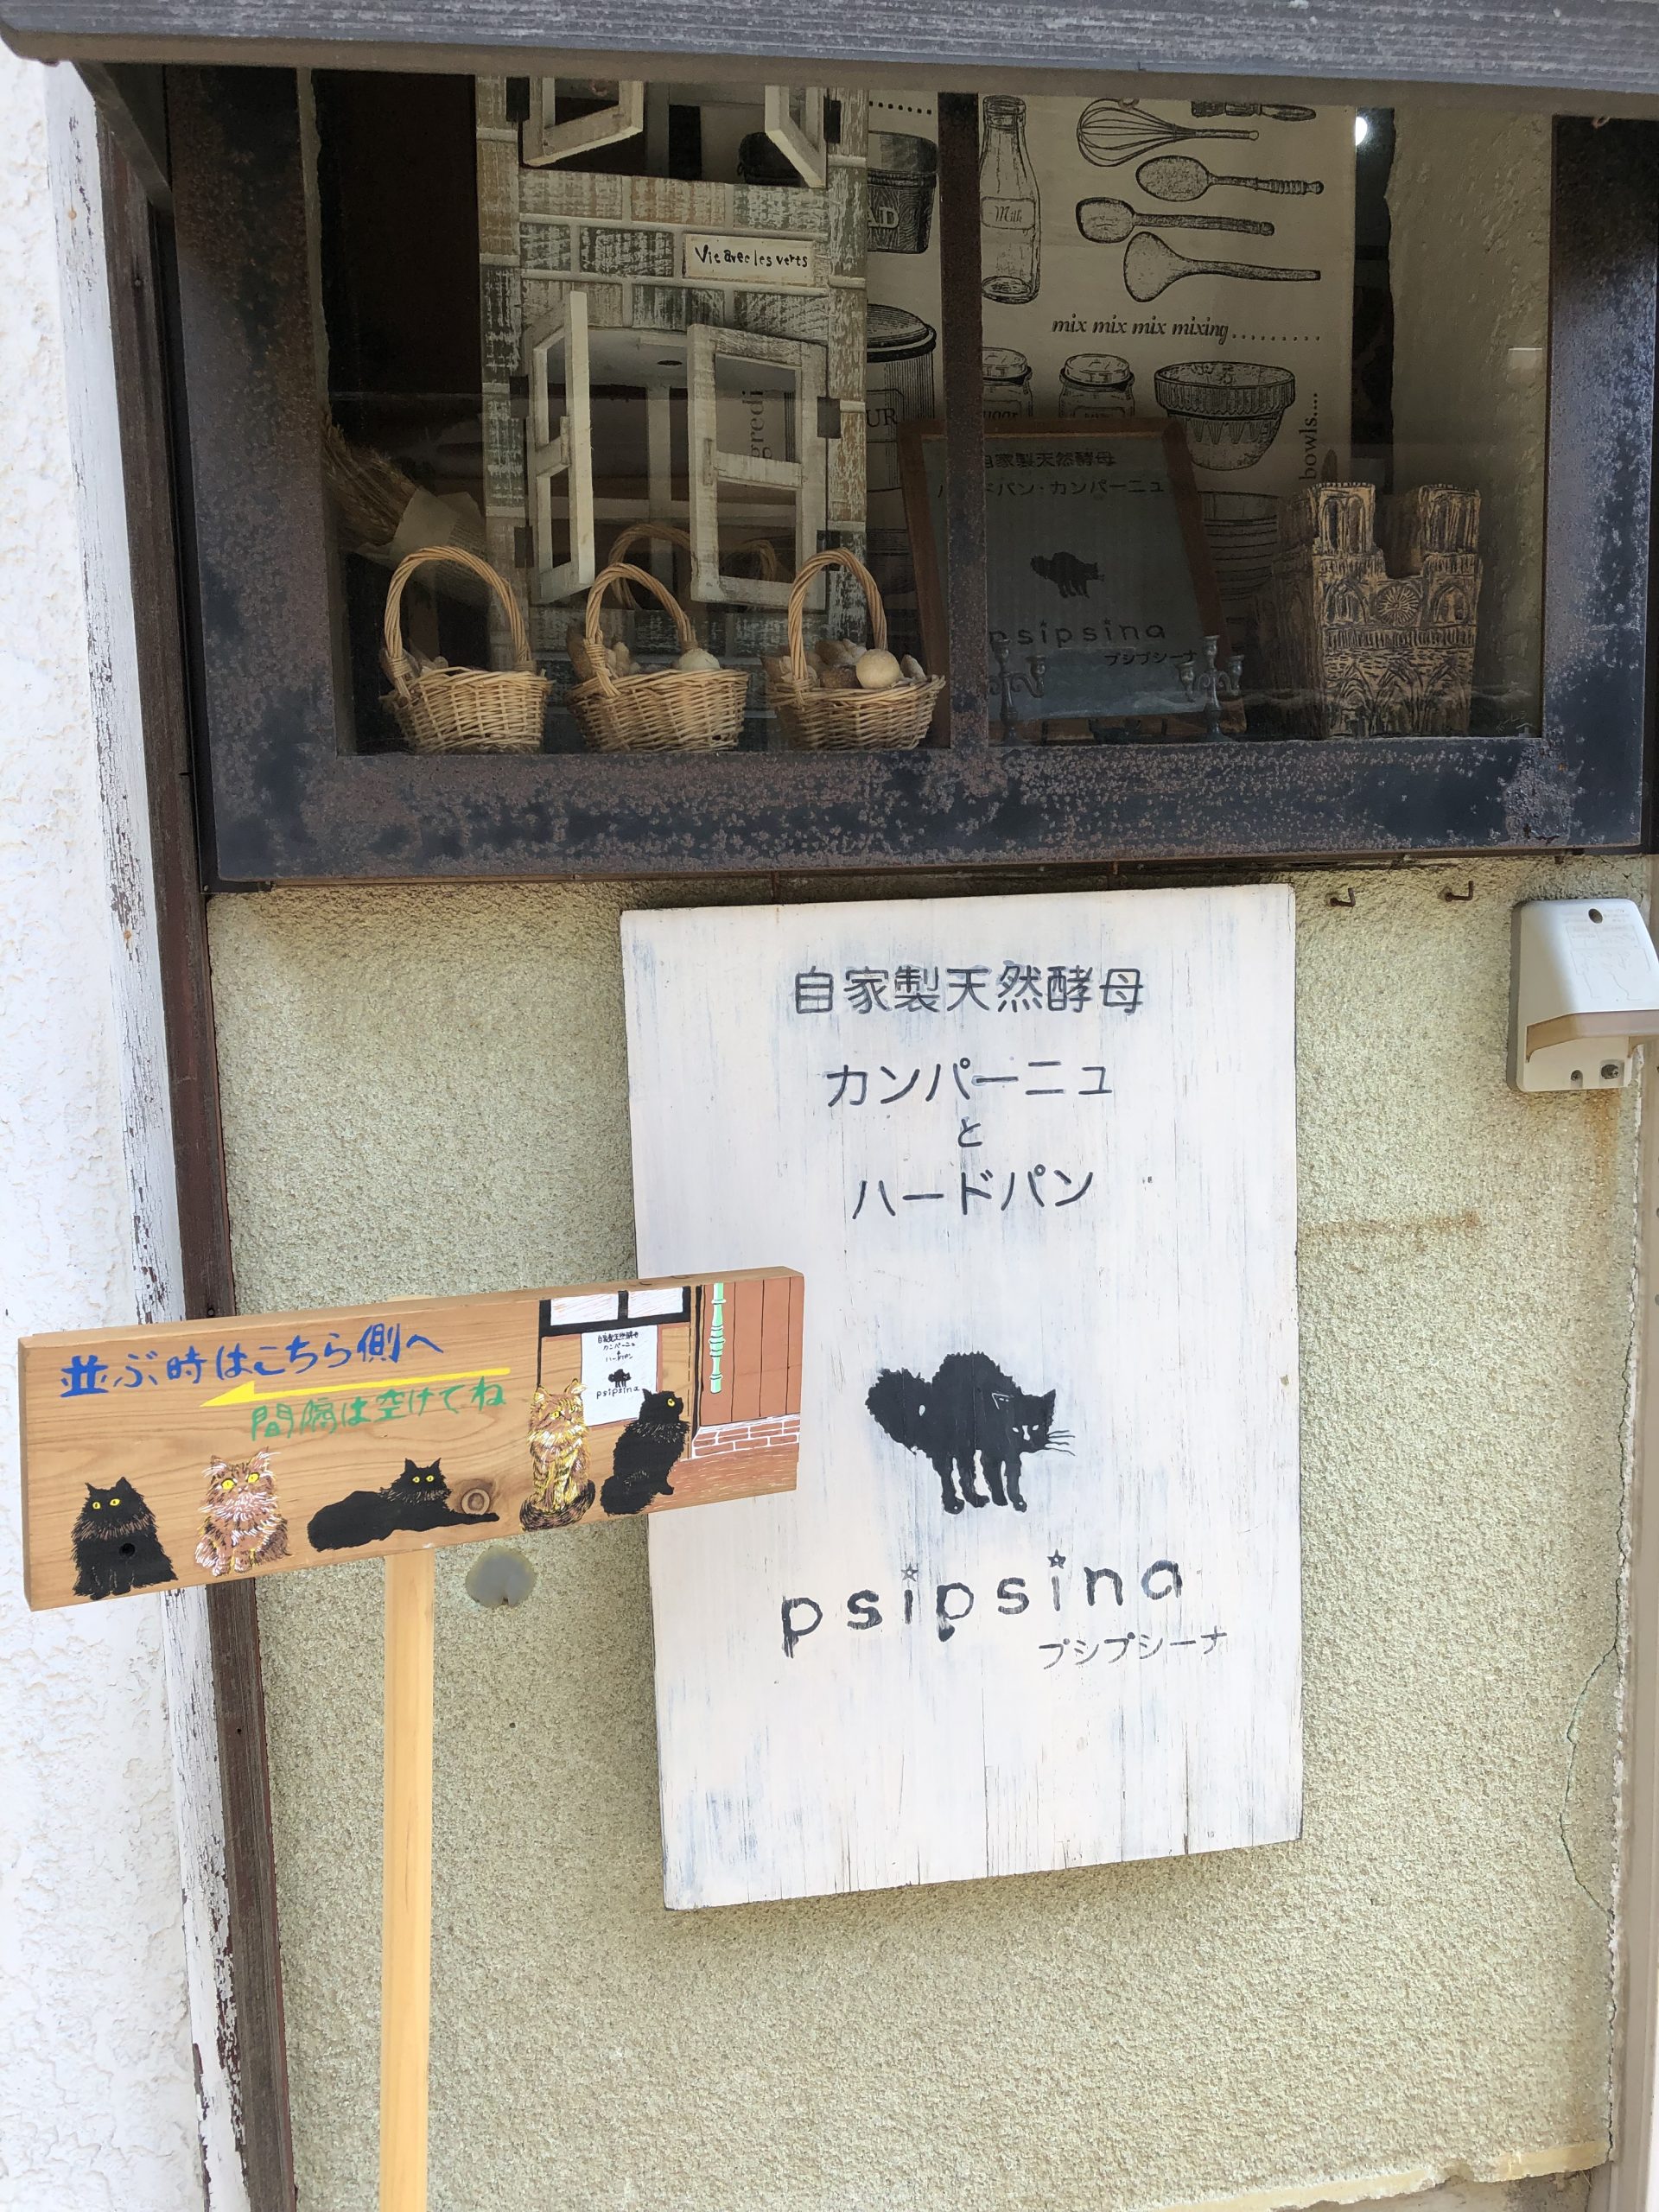 Vie avec les verts
Milk
mix mix mix mixing.........
bowls....
自家製天然酵母
ハードパン・カンパーニュ
psipsina
プシプシーナ
自家製天然酵母
カンパーニュ
と
ハードパン
psipsina
プシプシーナ
並ぶ時はこちら側へ
間隔は空けてね
自家製天然酵母
カンパーニュ
と
ハードパン
psipsina